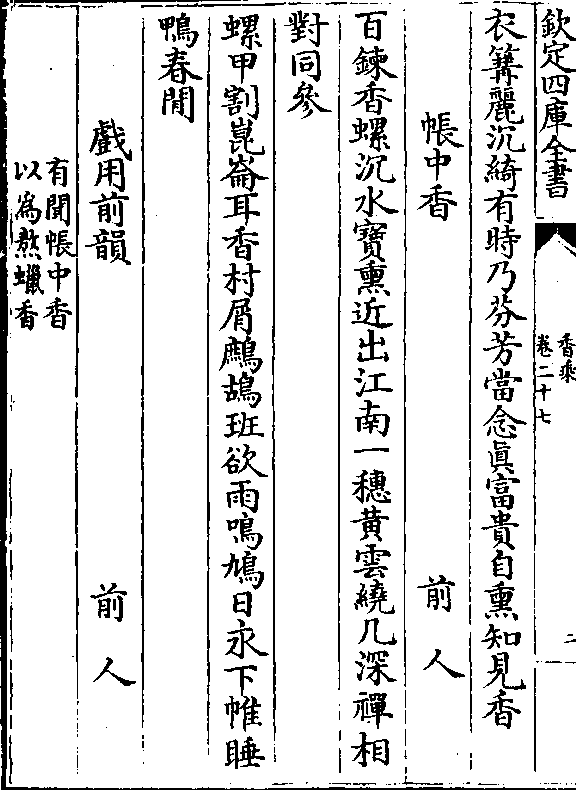 欽定四庫全書
香乘
卷二十七
二
衣篝麗沉綺有時乃芬芳當念眞富貴自熏知見香
帳中香　前人
百鍊香螺沉水寶熏近出江南一穗黄雲繞几深禪相
對同參
螺甲割崑崙耳香村屑鷓鴣班欲雨鳴鳩日永下帷睡
鴨春閒
戲用前韻　前人
有聞帳中香
以為熬蠟香